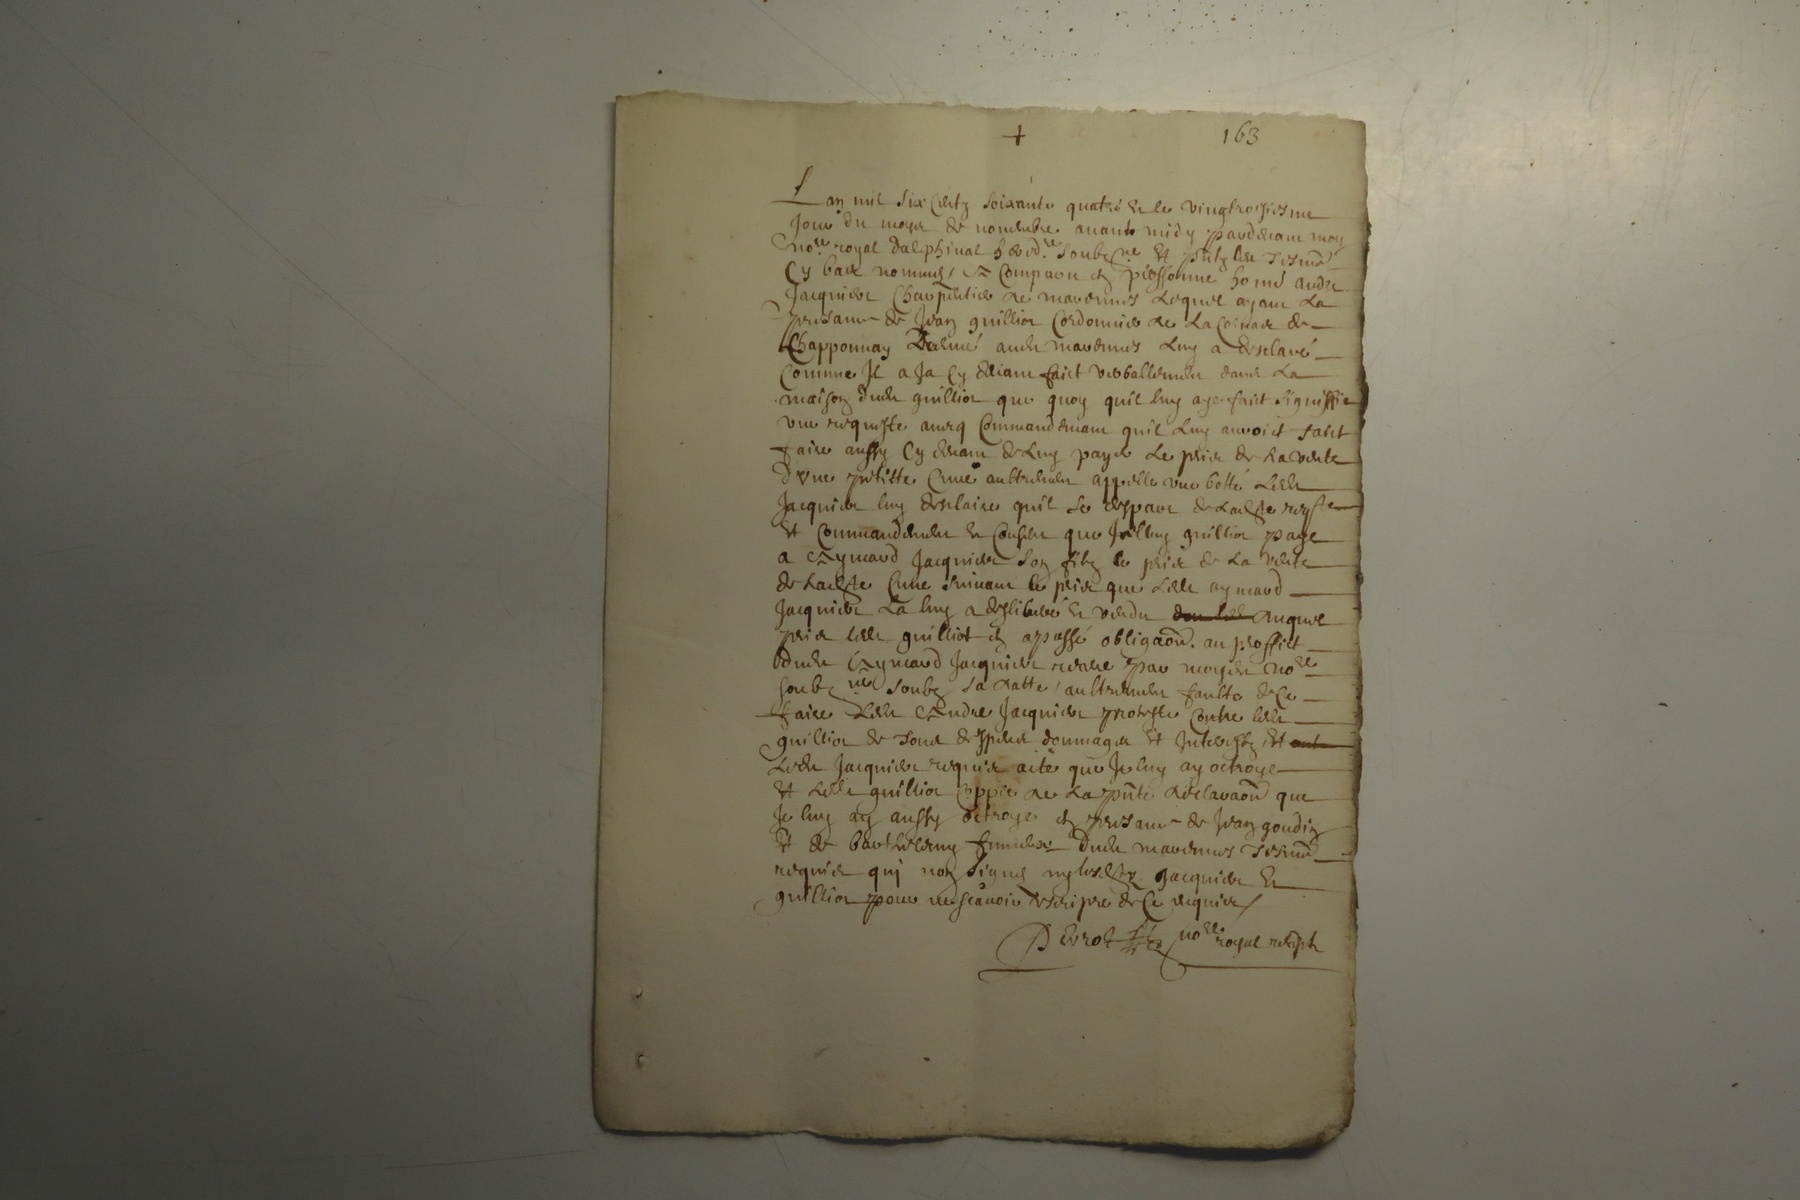 + 163
Lan mil six centz soixante quatre et le vingtroisiesme
Jour du moys de nomenbre auant midy pardeuant moy
no.re royal dalphinal hered.re soubz.né et puts les tesms
Cy bas nommes, est Comparu en personne honē andre
Jacquier Charpentier de marennes lequel ayant la
presance de Jean guillot Cordonnier de la Comār de
Chapponnay audit marennes luy a desclaré
Comme Il a Ja Cy deuant faict verballement dans la
maison dudt guillot que quoy quil luy aye faict signiffier
vne requeste auecq Commandement quil luy auroict faict
faire aussy Cy deuant de luy payer le prix de la vente
d'vne petitte Cuue aultrement appellé vne botte ledt
Jacquier luy desclaire quil se despart de ladte reqste
et Commandement et Consent que Icelluy guillot paye
a Eymard Jacquier son filz le prix de la vente
de ladte Cuue suiuant le prix que ledt aymard
Jacquier la luy a desliburé et vendu auquel
prix ledt guillot en a passé obligaon. au proffict
dudt Eymard Jacquier receue par moydt no.re
soubz.né soubz sa datte, aultrement faulte de Ce
faire ledt Andre Jacquier proteste Contre ledt
guillot de tous despens dommages et Interestz, et
ledt Jacquier requis acte que Je luy ay octroye
et ledt guillot Coppie de la pnte desclaraon que
Je luy ay aussy octroye en presance de Jean goudin
et de barthelemy dudt marennes tesms
requis qui non signe ny lesdtz Jacquier et
guillot pour ne scauoir escripre de Ce requis /
no.re royal recept